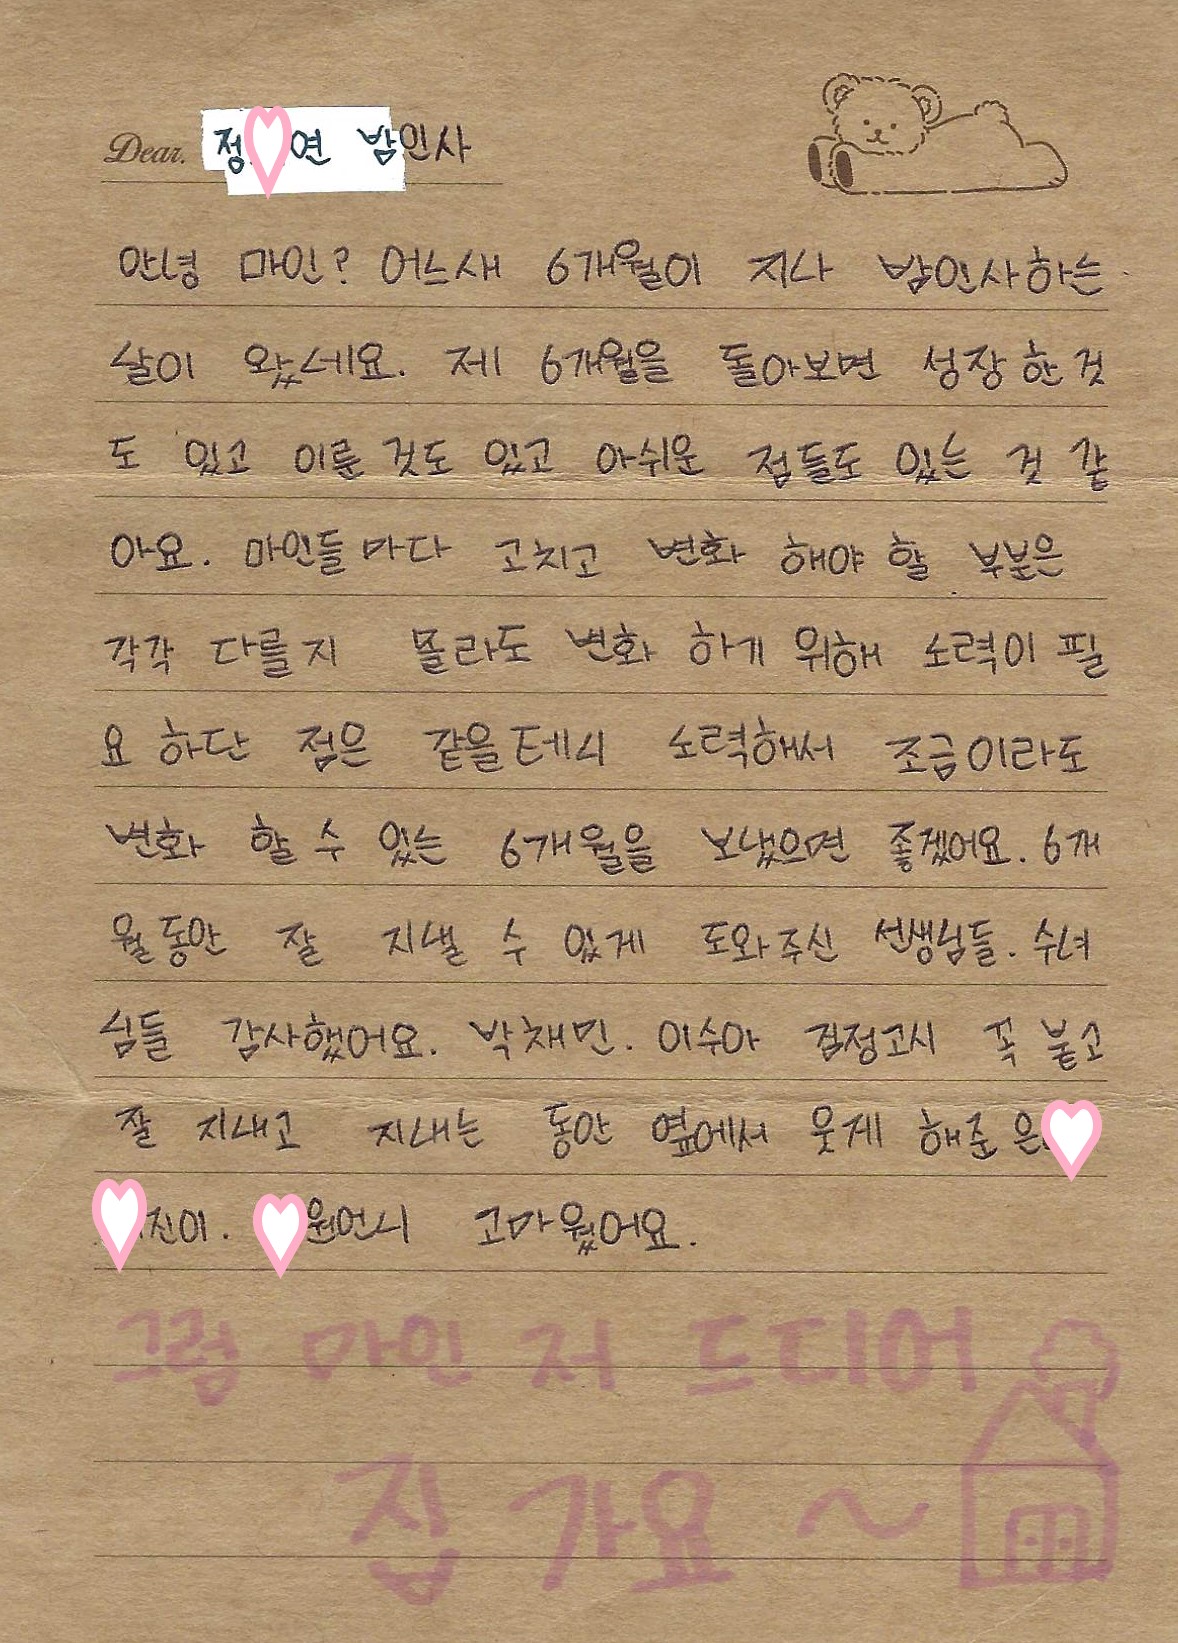 Dear. 정 연 밤인사
안녕 마인? 어느새 6개월이 지나 밤인사하는
날이 왔네요. 제 6개월을 돌아보면 성장 한 것
도 있고 이룬 것도 있고 아쉬운 점들도 있는 것 같
아요. 마인들 마다 고치고 변화 해야 할 부분은
각각 다를지 몰라도 변화 하기 위해 노력이 필
요 하단 점은 같을테니 노력해서 조금이라도
변화 할 수 있는 6개월을 보냈으면 좋겠어요. 6개
월 동안 잘 지낼 수 있게 도와주신 선생님들. 수녀
님들 감사했어요. 박채민. 이수아 검정고시 꼭 붙고
잘 지내고 지내는 동안 옆에서 웃게 해준 은
진이. 원언니 고마웠어요.
그럼 마인 저 드디어
집 가요 ~